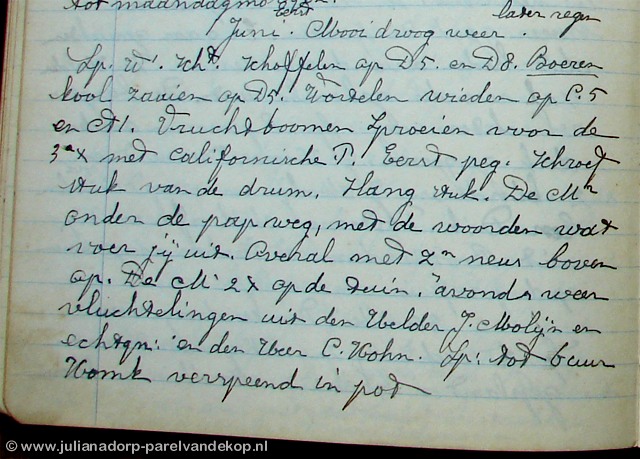 tot maandagmo
Eerst later regen
Juni. Mooi droog weer.
Sp. W. Scht. Schoffelen op D5. en D8. Boeren
kool zaaien op D5. Wortelen wieden op C.5
en A1. Vruchtboomen Sproeien voor de
3e x met Californische P. Eerst peg. Schroef
stuk van de drum. Slang stuk. De Mr
onder de pap weg, met de woorden wat
voer jij uit. Overal met zn neus boven
op. De M 2x op de tuin. 's avonds weer
vluchtelingen uit den Helder J. Molijn en
echtgn: en den Heer C. Hohn. Sp: tot buur
Homk verspeend in pot
© www.julianadorp-parelvandekop.nl